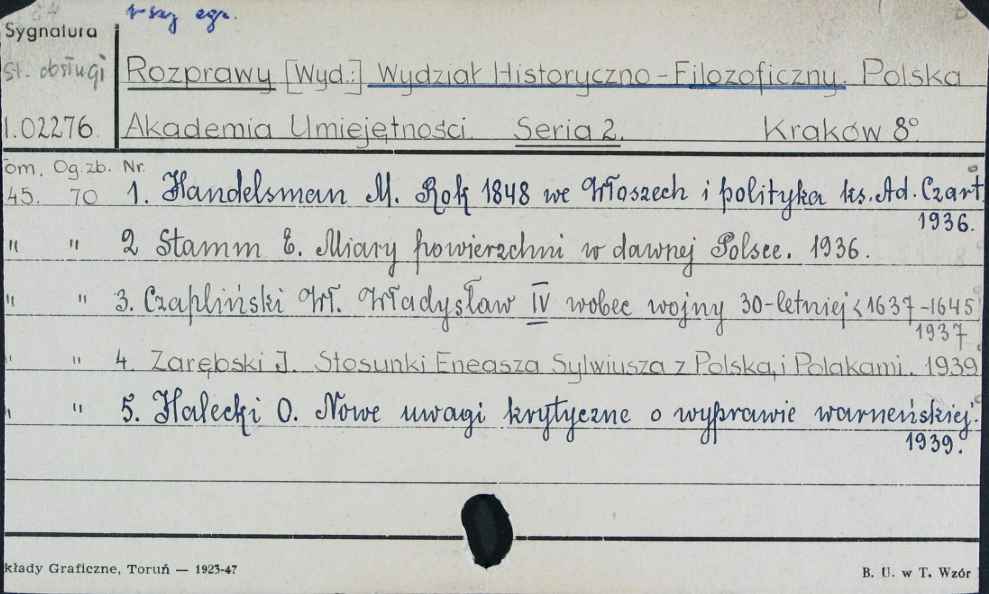 1-szy egz.
Sygnatura
st. obsługi
Rozprawy [Wyd.:] Wydział Historyczno-Filozoficzny. Polska
1.02276
Akademia Umiejętności. Seria 2. Kraków 8°
om. Og.zb. Nr.
45. 70 1. Handelsman M. Rok 1848 we Włoszech i polityka ks. Ad. Czart.
1936.
" " 2 Stamm E. Miary powierzchni w dawnej Polsce. 1936.
" " 3. Czapliński Wł. Władysław IV wobec wojny 30-letniej <1637-1645
1937
" " 4. Zarębski I. Stosunki Eneasza Sylwiusza z Polską i Polakami. 1939
" " 5. Halecki O. Nowe uwagi krytyczne o wyprawie warneńskiej.
1939.
kłady Graficzne, Toruń — 1923-47
B. U. w T. Wzór